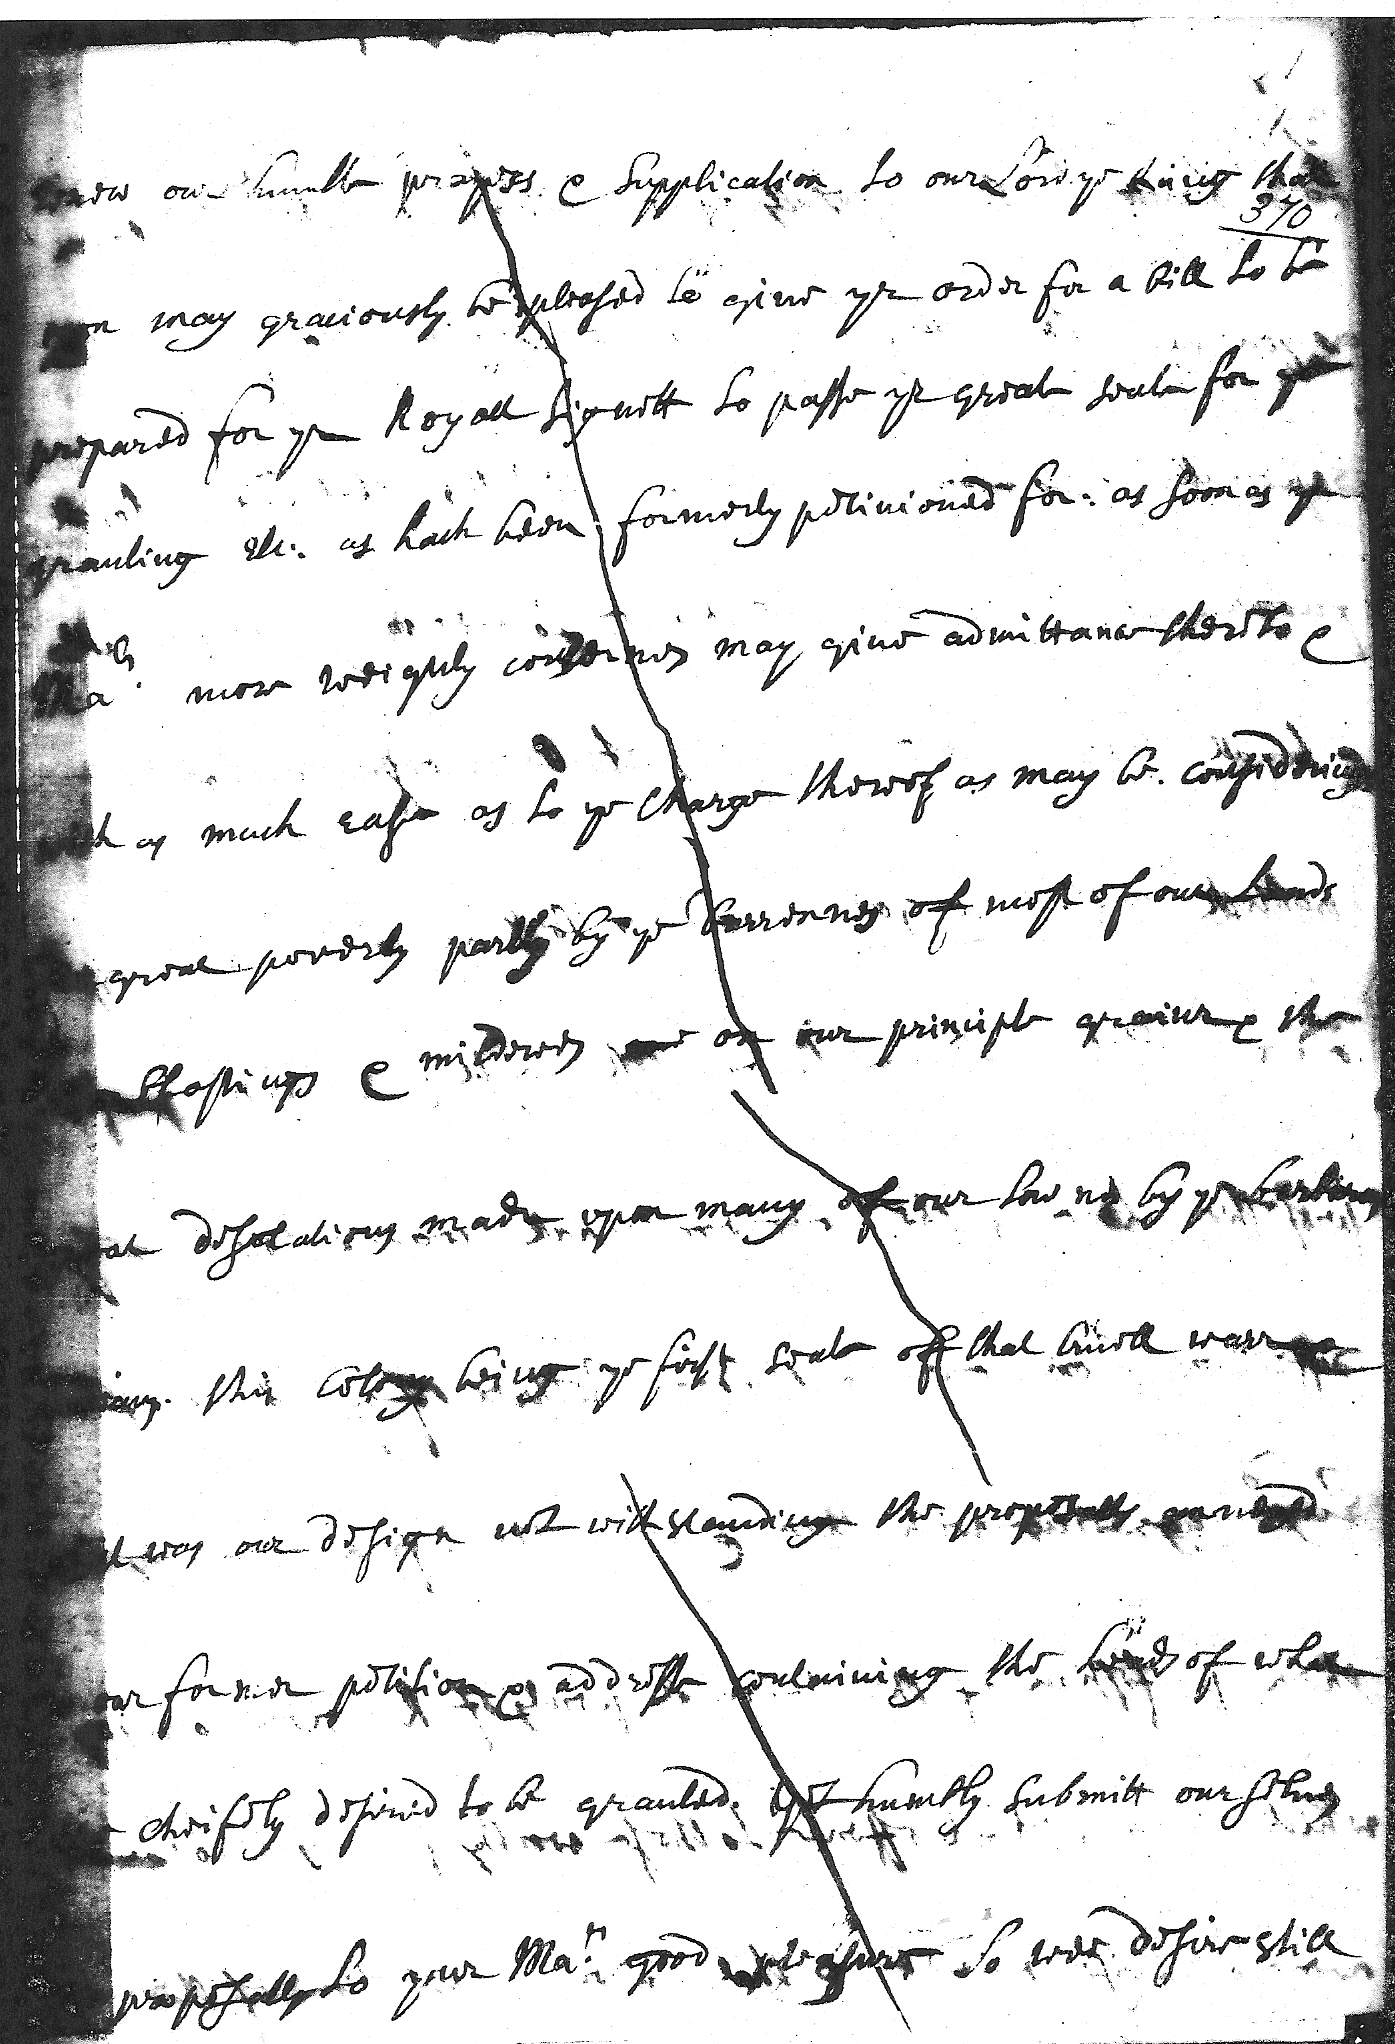 our humble prayers & Supplication to our Lord ye King that
370
may graciously be pleased to give yr order for a bill to be
prepared for yr Royall Signett to passe yr great seale for ye
granting &c: as hath been formerly petitioned for: as soon as yr
Matis more weighty concernes may give admittance thereto &
as much ease as to ye Charge thereof as may be. considering
great poverty partly by ye barrennes of most of our Lands
blastings & mildewes on our principle graine & the
desolations made upon many of our townes by ye barbarous
this Colony being ye first seate of that cruell warr
was our design not withstanding the proposalls
our former petition & addresse containing the heads of what
cheifely desired to be granted. yet humbly submitt our selves
proposalls to your Matis good pleasure So wee desire still